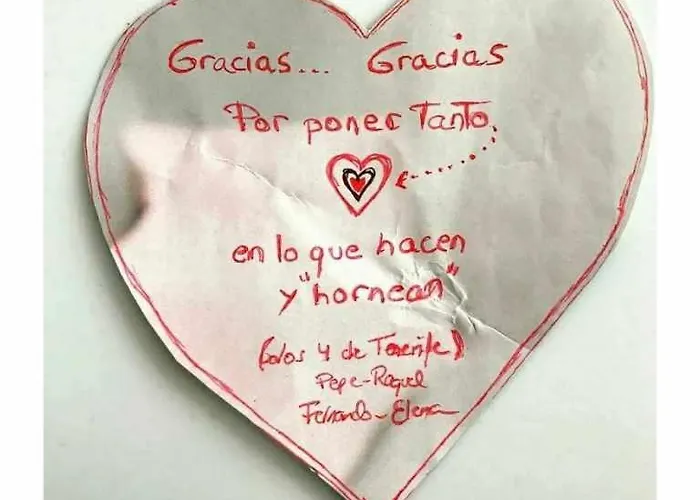 Gracias... Gracias
Por poner Tanto
en lo que hacen
y "hornean"
(los 4 de Tenerife)
Pepe-Raquel
Fernando-Elena